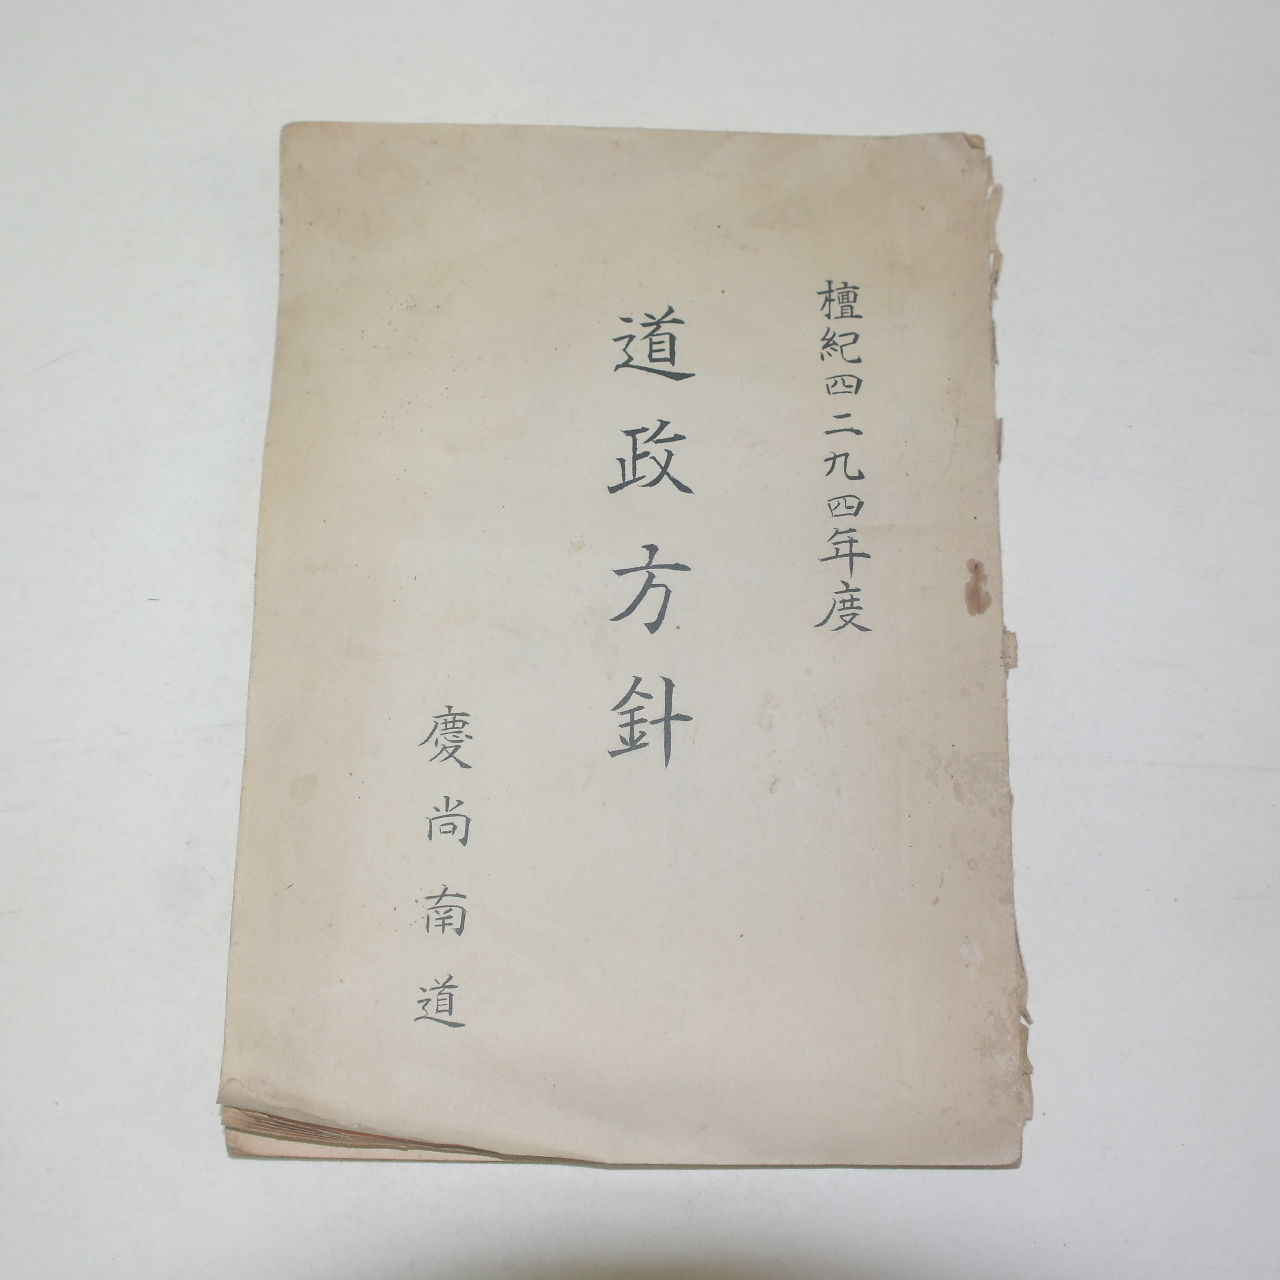 檀紀四二九四年度
道政方針
慶尚南道